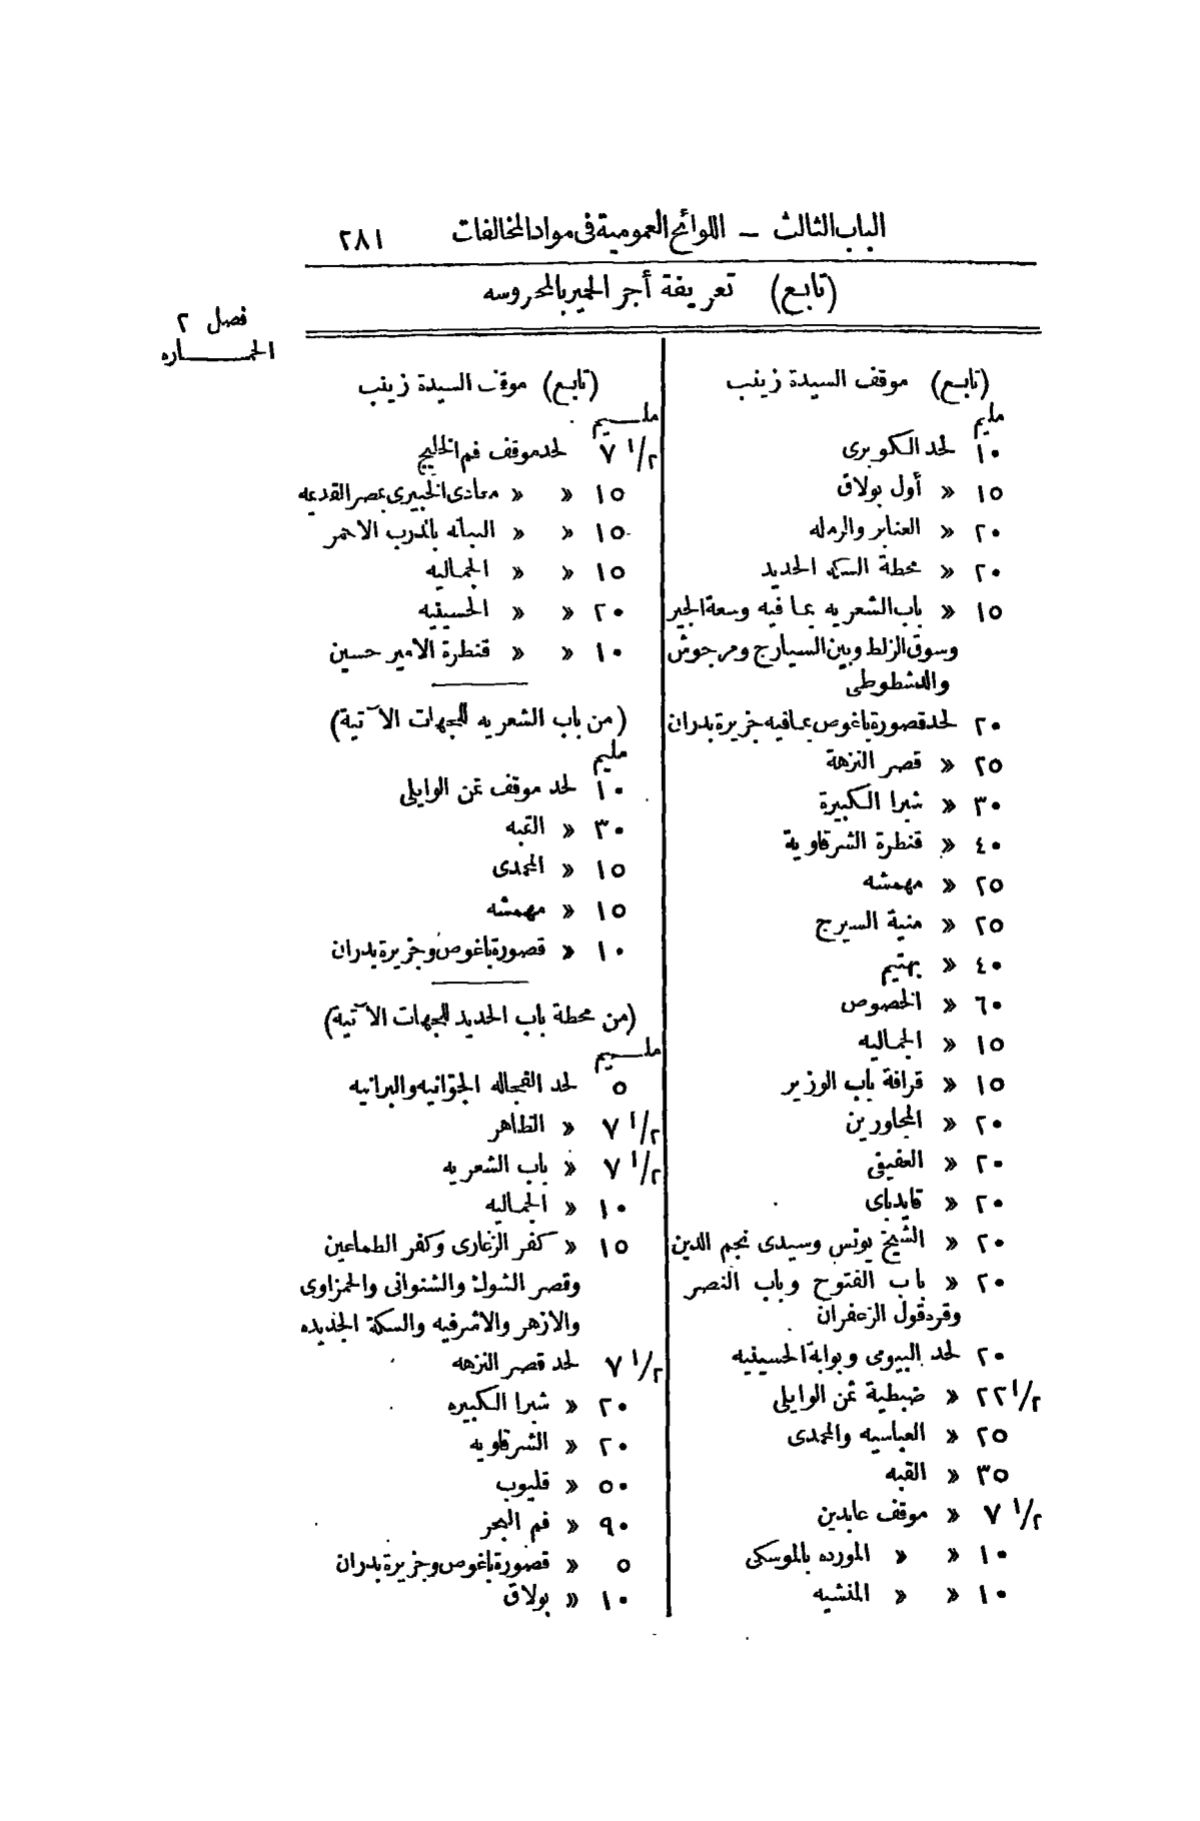 الباب الثالث — اللوائح العمومية فى مواد المخالفات ٢٨١
(تابع) تعريفة أجر الحمير بالمحروسه
فصل ٢
الحمـــاره
(تابع) موقف السيدة زينب
مليم
١٠ لحد الكوبرى
١٥ » أول بولاق
٢٠ » العنابر والرمله
٢٠ » محطة السكه الحديد
١٥ » باب الشعريه بما فيه وسعة الجير
وسوق الزلط وبين السيارج ومرجوش
والدشطوطى
٢٠ لحد قصورة باغوص بما فيه جزيرة بدران
٢٥ » قصر النزهة
٣٠ » شبرا الكبيرة
٤٠ » قنطرة الشرقاوية
٢٥ » مهمشه
٢٥ » منية السيرج
٤٠ » بهتيم
٦٠ » الخصوص
١٥ » الجماليه
١٥ » قرافة باب الوزير
٢٠ » المجاورين
٢٠ » العفيفى
٢٠ » قايدباى
٢٠ » الشيخ يونس وسيدى نجم الدين
٢٠ » باب الفتوح وباب النصر
وقره قول الزعفران
٢٠ لحد البيومى وبوابة الحسينيه
٢٢ ١/٢ » ضبطية ثمن الوايلى
٢٥ » العباسيه والمحمدى
٣٥ » القبه
٧ ١/٢ » موقف عابدين
١٠ » » المورده بالموسكى
١٠ » » المنشيه
(تابع) موقف السيدة زينب
ملـــيم
٧ ١/٢ لحد موقف فم الخليج
١٥ » » معادى الخبيرى بمصر القديمه
١٥ » » البيانه بالدرب الاحمر
١٥ » » الجماليه
٢٠ » » الحسينيه
١٠ » » قنطرة الامير حسين
(من باب الشعريه للجهات الآتية)
مليم
١٠ لحد موقف ثمن الوايلى
٣٠ » القبه
١٥ » المحمدى
١٥ » مهمشه
١٠ » قصورة باغوص وجزيرة بدران
(من محطة باب الحديد للجهات الآتية)
ملـــيم
٥ لحد الفجاله الجوّانيه والبرانيه
٧ ١/٢ » الظاهر
٧ ١/٢ » باب الشعريه
١٠ » الجماليه
١٥ » كفر الزغارى وكفر الطماعين
وقصر الشوك والشنوانى والحمزاوى
والازهر والاشرفيه والسكة الجديده
٧ ١/٢ لحد قصر النزهه
٢٠ » شبرا الكبيره
٢٠ » الشرقاويه
٥٠ » قليوب
٩٠ » فم البحر
٥ » قصورة باغوص وجزيرة بدران
١٠ » بولاق